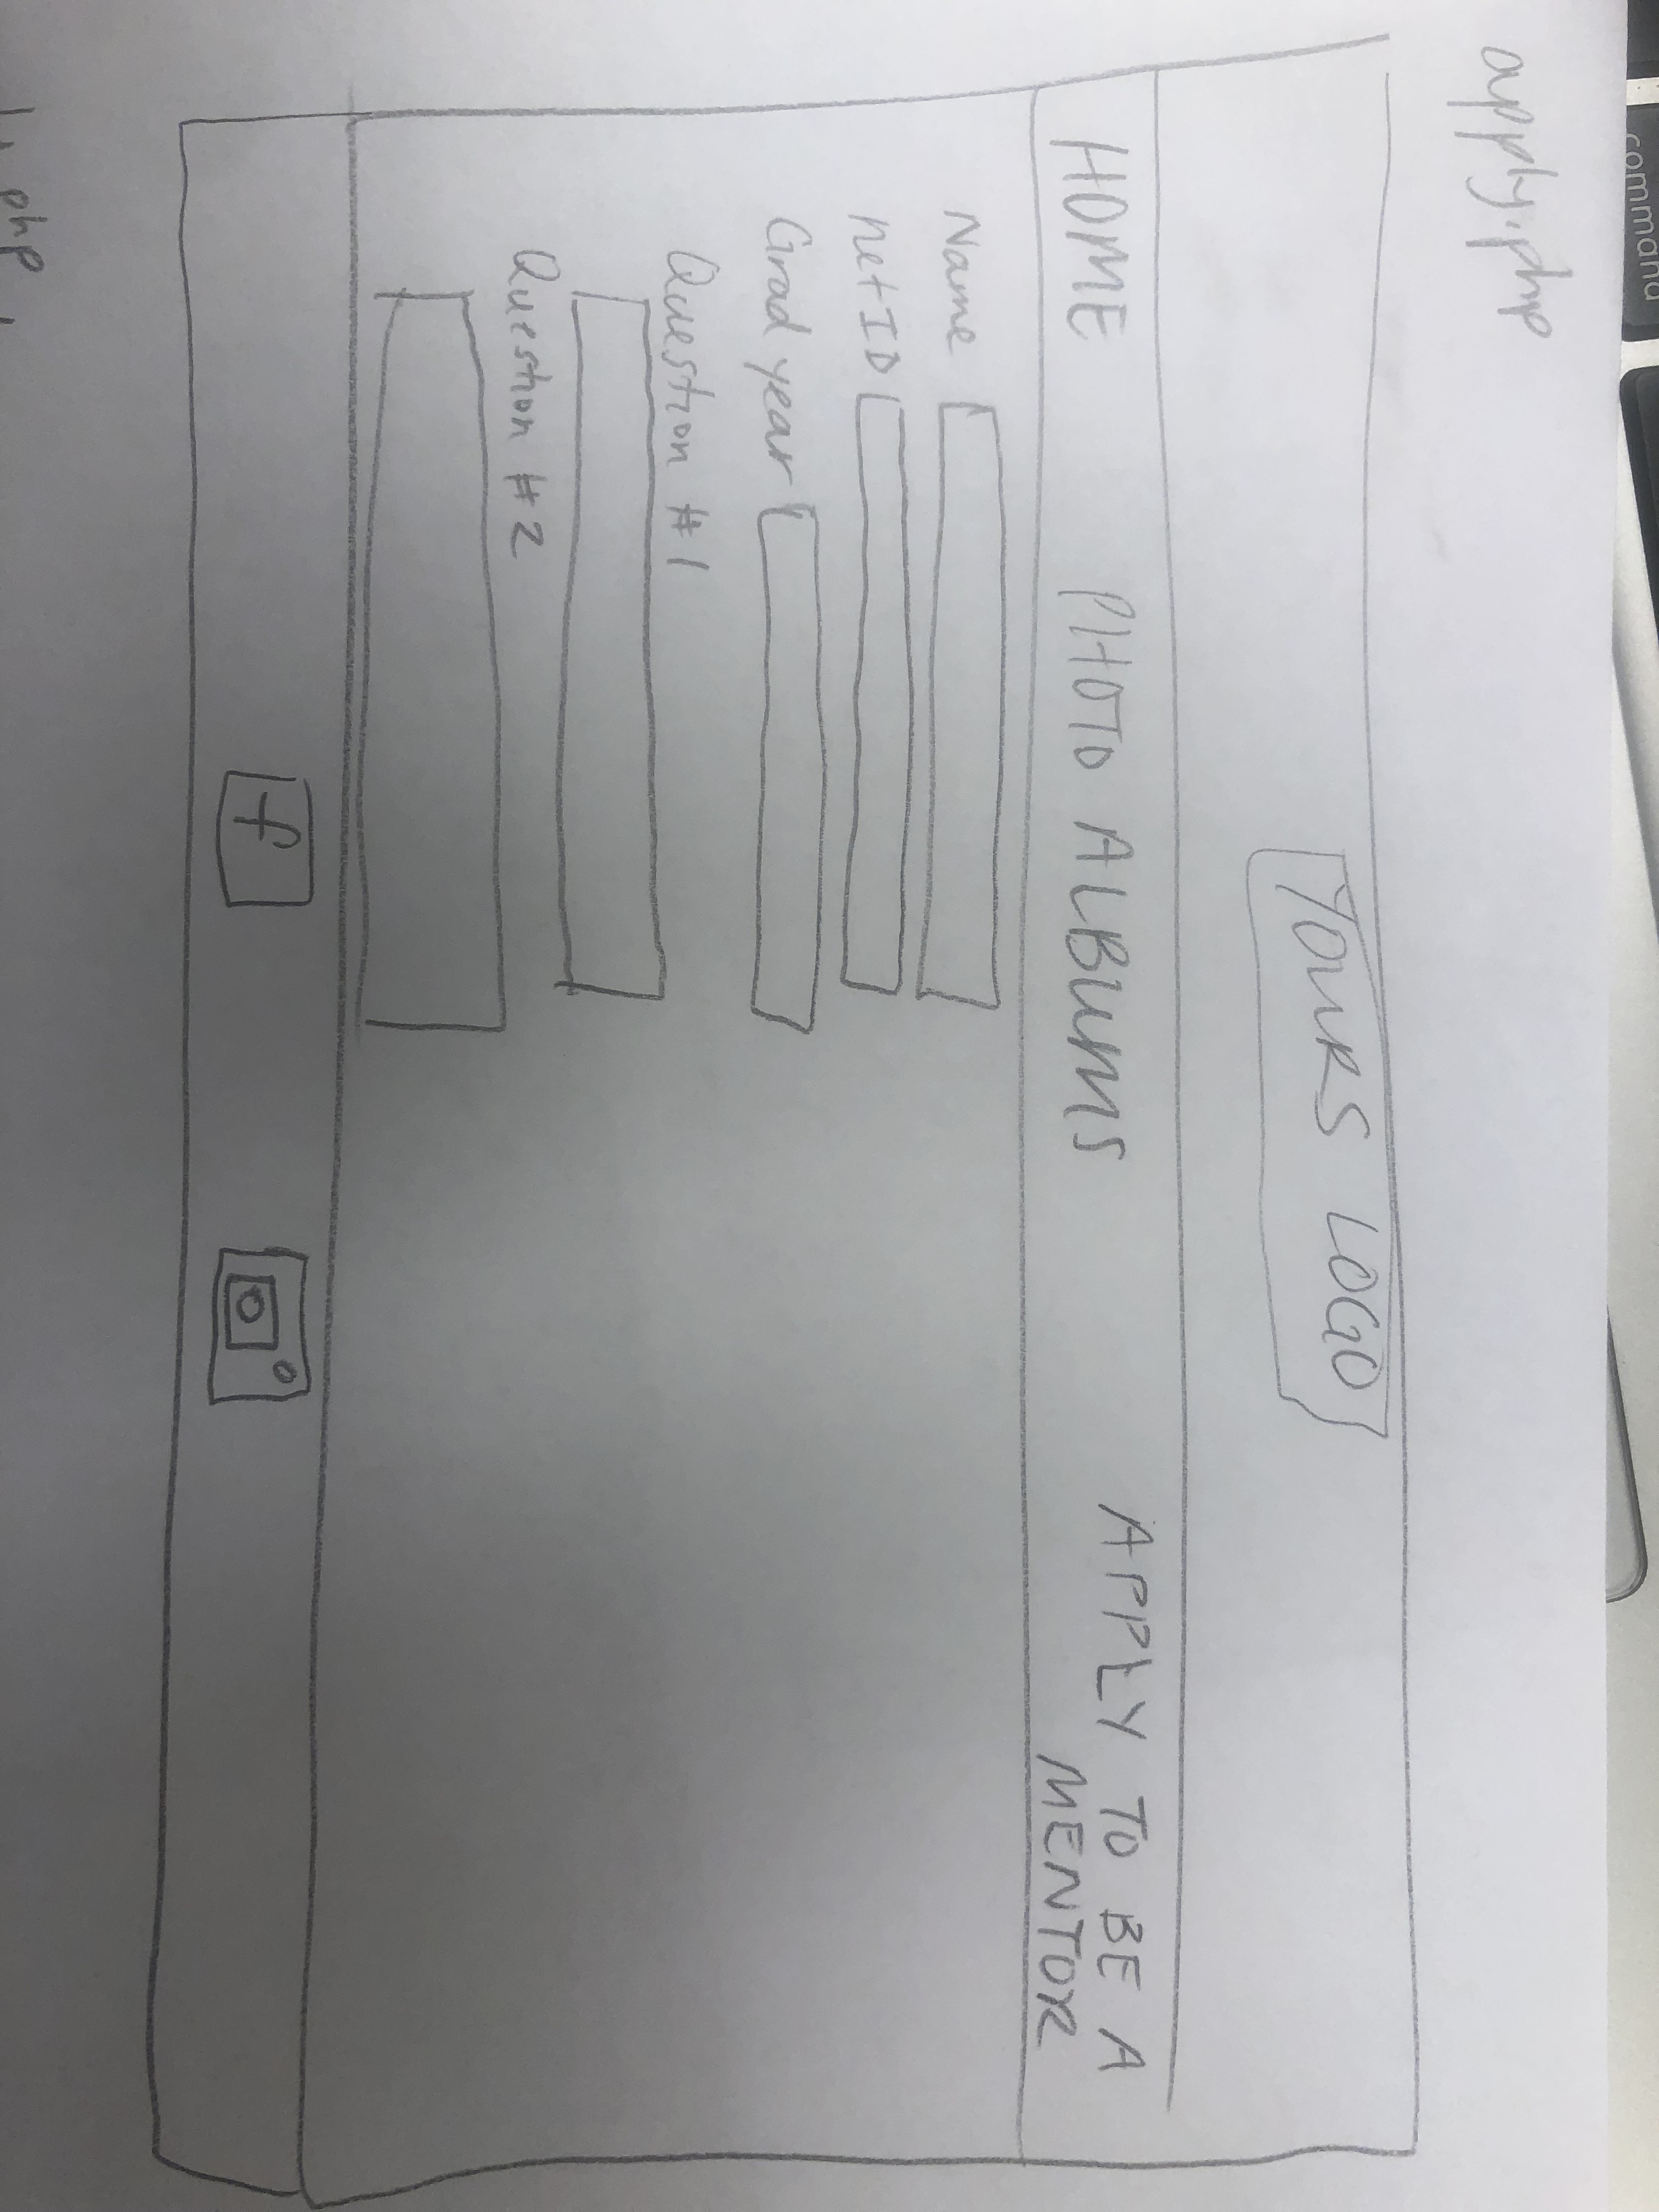 command
apply.php
YOURS LOGO
HOME PHOTO ALBUMS APPLY TO BE A
MENTOR
Name
netID
Grad year
Question #1
Question #2
f
php